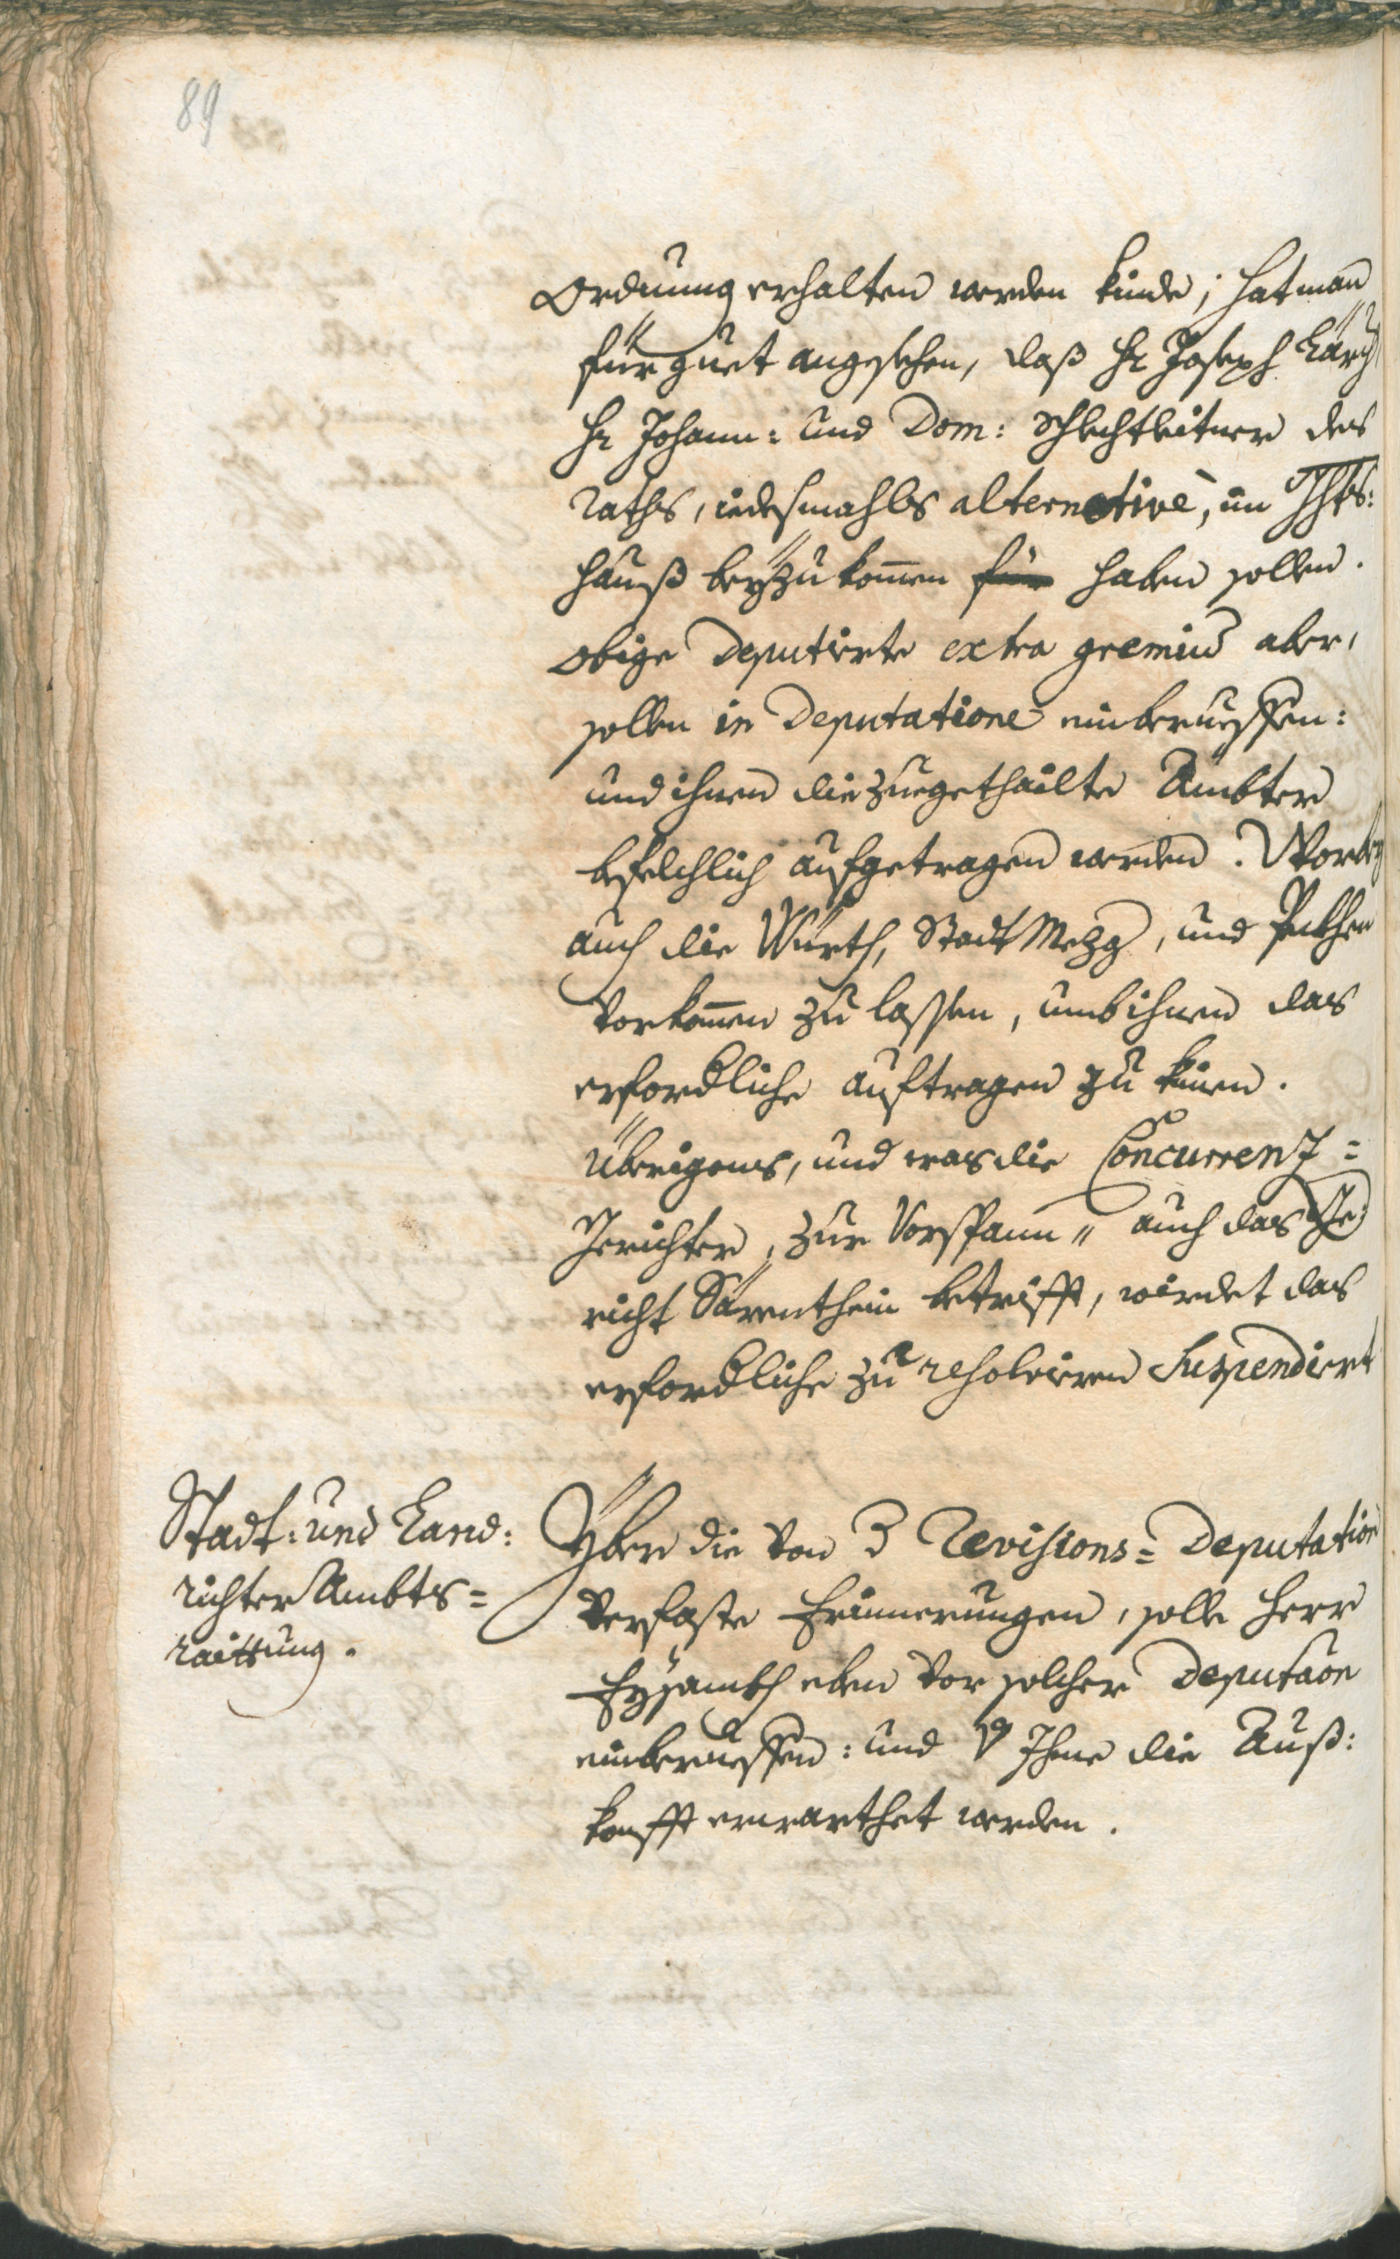 89
Ordnung erhalten werden künde; hat man
für guet angesehen, daß H: Joseph
H: Johann: und Dom: Schlechtleitner des
Raths, iedesmahls alternativè, im
hauß beyzukommen für haben sollen.
Obige Deputierte extra gremiū aber,
sollen in Deputatione einberueffen:
und ihnen die zuegethailte Ämbter
befelchlich aufgetragen werden. Worbey
auch die Würth, Stadt Mezg, und Pekhen
vorkom̄en zu lassen, umb ihnen das
erfordliche auftragen zu künen.
Übrigens, und was die Concurrenz=
Gerichter, zur Vorspann" auch das Ge:
richt Särenthein betrifft, wirdet das
erfordliche zu resolvieren Suspendiert
Stadt: und Land:
richter Ambts=
raittung.
Yber die von 3 Revisions=Deputation
verfaste Erinnerungen, solle Herr
Eysambl eben vor solcher Deputaõn
einberueffen: und v Ihme die Auß:
konfft erwarthet werden.